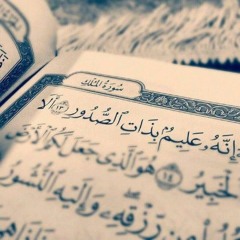 سُورَةُ الْمُلْكِ
إِنَّهُۥ عَلِيمٌۢ بِذَاتِ ٱلصُّدُورِ ١٣ أَلَا
ٱلْخَبِيرُ ١٤ هُوَ ٱلَّذِى جَعَلَ لَكُمُ ٱلْأَرْضَ
مِن رِّزْقِهِۦ وَإِلَيْهِ ٱلنُّشُورُ